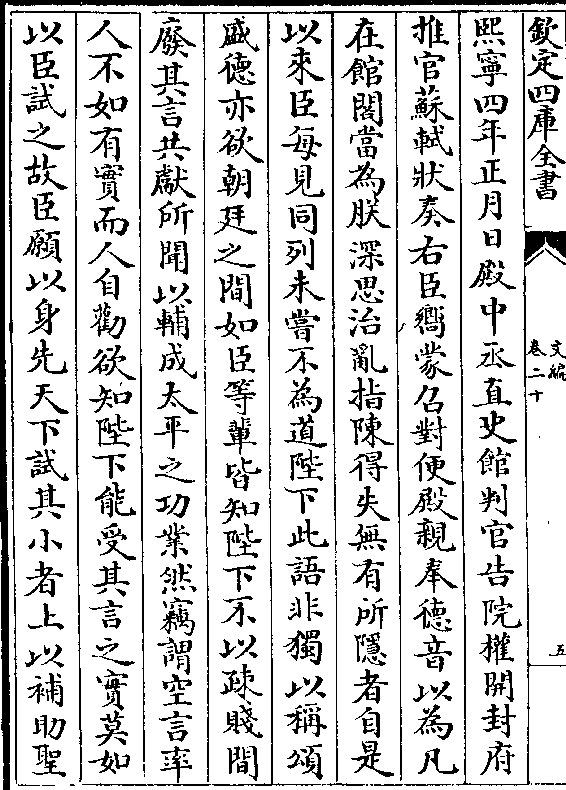 欽定四庫全書
文編
卷二十
五
熙寧四年正月日殿中丞直史館判官告院權開封府
推官蘇軾狀奏右臣嚮蒙召對便殿親奉德音以為凡
在館閣當為朕深思治亂指陳得失無有所隱者自是
以來臣每見同列未嘗不為道陛下此語非獨以稱頌
盛德亦欲朝廷之間如臣等輩皆知陛下不以疎賤間
廢其言共獻所聞以輔成太平之功業然竊謂空言率
人不如有實而人自勸欲知陛下能受其言之實莫如
以臣試之故臣願以身先天下試其小者上以補助聖